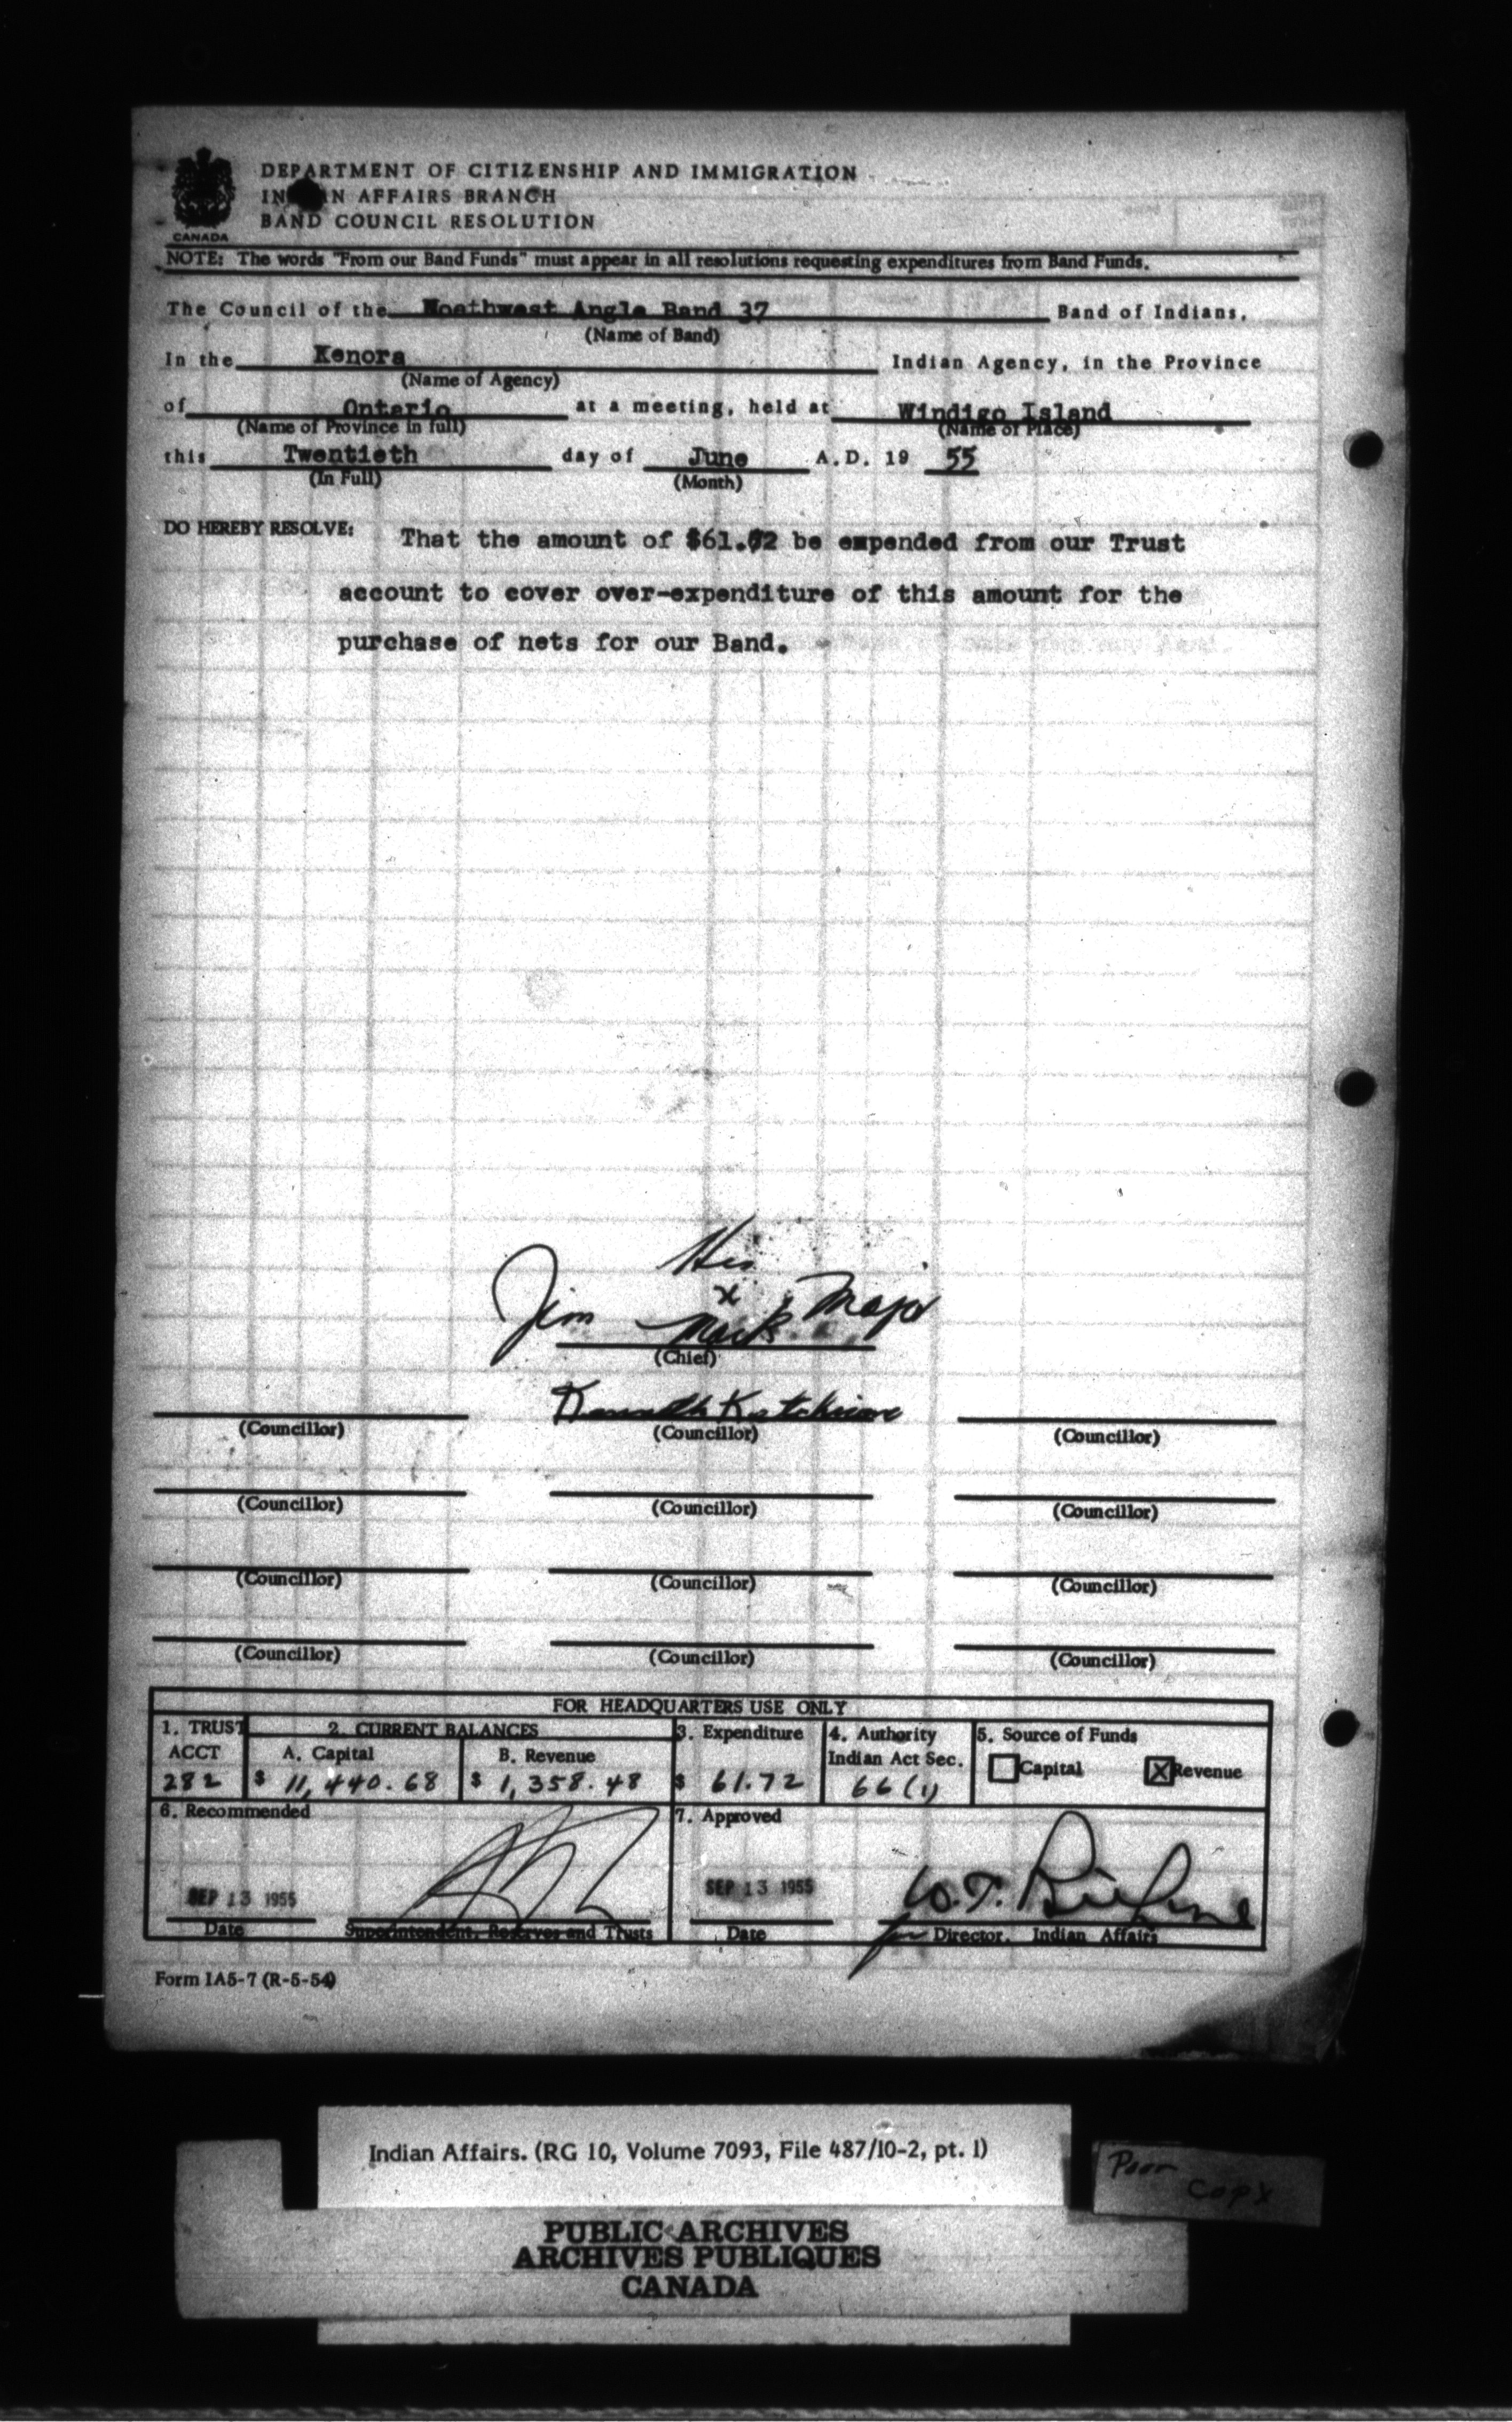 DEPARTMENT OF CITIZENSHIP AND IMMIGRATION
INDIAN AFFAIRS BRANCH
BAND COUNCIL RESOLUTION
CANADA
NOTE: The words "From our Band Funds" must appear in all resolutions requesting expenditures from Band Funds.
The Council of the Noethwest Angle Band 37 Band of Indians,
(Name of Band)
In the Kenora Indian Agency, in the Province
(Name of Agency)
of Ontario at a meeting, held at Windigo Island
(Name of Province in full) (Name of Place)
this Twentieth day of June A.D. 19 55
(In Full) (Month)
DO HEREBY RESOLVE: That the amount of $61.72 be expended from our Trust
account to cover over-expenditure of this amount for the
purchase of nets for our Band.
His
Jim x Major
Mark
(Chief)
Kenneth
(Councillor) (Councillor) (Councillor)
(Councillor) (Councillor) (Councillor)
(Councillor) (Councillor) (Councillor)
(Councillor) (Councillor) (Councillor)
FOR HEADQUARTERS USE ONLY
1. TRUST 2. CURRENT BALANCES 3. Expenditure 4. Authority 5. Source of Funds
ACCT A. Capital B. Revenue Indian Act Sec. Capital X Revenue
282 $ 11,440.68 $ 1,358.48 $ 61.72 66(1)
6. Recommended 7. Approved
SEP 13 1955 SEP 13 1955 W.T.
Date Superintendent, Reserves and Trusts Date for Director, Indian Affairs
Form IA5-7 (R-5-54)
Indian Affairs. (RG 10, Volume 7093, File 487/10-2, pt. 1)
Poor
Copy
PUBLIC ARCHIVES
ARCHIVES PUBLIQUES
CANADA